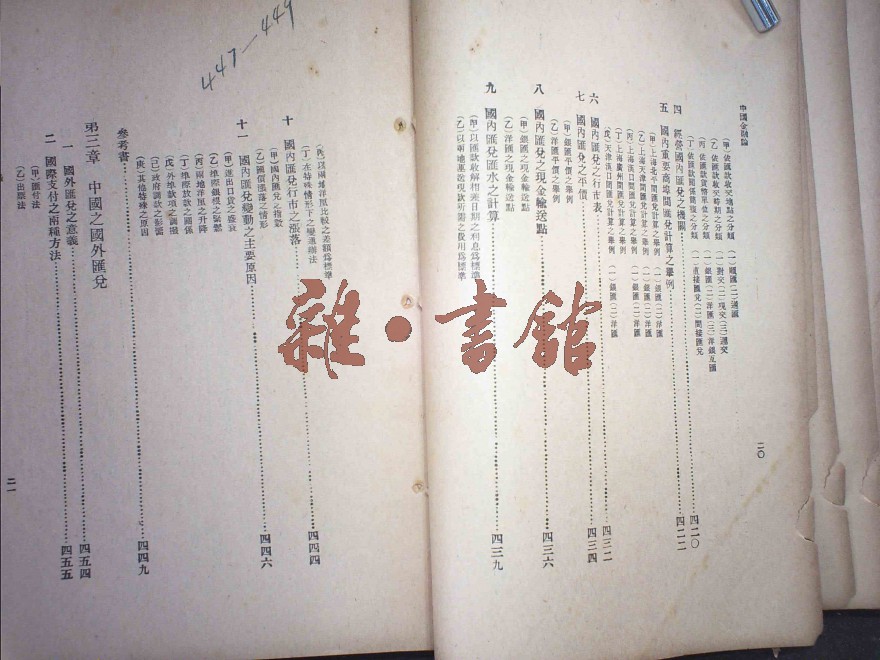 中國金融論
(甲)依匯款收交地點之分類 (一)順匯(二)逆匯
(乙)依匯款收交時期之分類 (一)對交(二)現交(三)遲交
(丙)依匯款貨幣單位之分類 (一)銀匯(二)洋匯(三)洋銀互匯
(丁)依匯款關係簡複之分類 (一)直接匯兌(二)間接匯兌
四 經營國內匯兌之機關 四二〇
五 國內重要商埠間匯兌計算之舉例 四二二
(甲)上海北平間匯兌計算之舉例 (一)銀匯(二)洋匯
(乙)上海天津間匯兌計算之舉例 (一)銀匯(二)洋匯
(丙)上海漢口間匯兌計算之舉例 (一)銀匯(二)洋匯
(丁)上海廣州間匯兌計算之舉例
(戊)天津漢口間匯兌計算之舉例 (一)銀匯(二)洋匯
六 國內匯兌之行市表 四三二
七 國內匯兌之平價 四三四
(甲)銀匯平價之舉例
(乙)洋匯平價之舉例
八 國內匯兌之現金輸送點 四三六
(甲)銀匯之現金輸送點
(乙)洋匯之現金輸送點
九 國內匯兌匯水之計算 四三九
(甲)以匯款收解相差日期之利息爲標準
(乙)以兩地運送現款所需之費用爲標準
二〇
447—449
(丙)以兩地洋厘比較之差額爲標準
(丁)在特殊情形下之變通辦法
十 國內匯兌行市之漲落 四四四
(甲)國內匯兌之指數
(乙)匯價漲落之情形
十一 國內匯兌變動之主要原因 四四六
(甲)進出口貨之盛衰
(乙)埠際銀根之鬆緊
(丙)兩地洋厘之升降
(丁)埠際放款的關係
(戊)外埠款項之調撥
(己)政府調款之影響
(庚)其他特殊之原因
參考書 四四九
第三章 中國之國外匯兌
一 國外匯兌之意義 四五四
二 國際支付之兩種方法 四五五
(甲)匯付法
(乙)出票法
二一
雜·書館